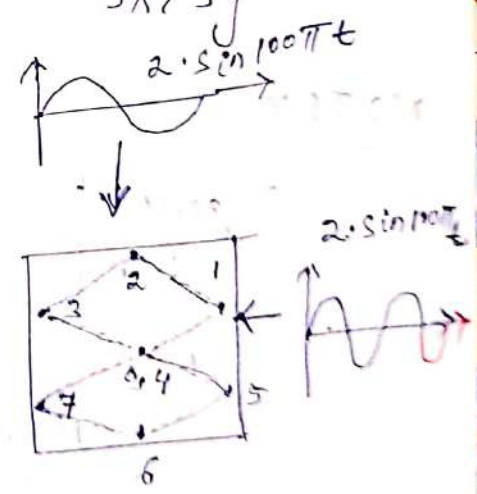 2·sin100πt
2·sin100πt
1
2
3
0,4
5
7
6